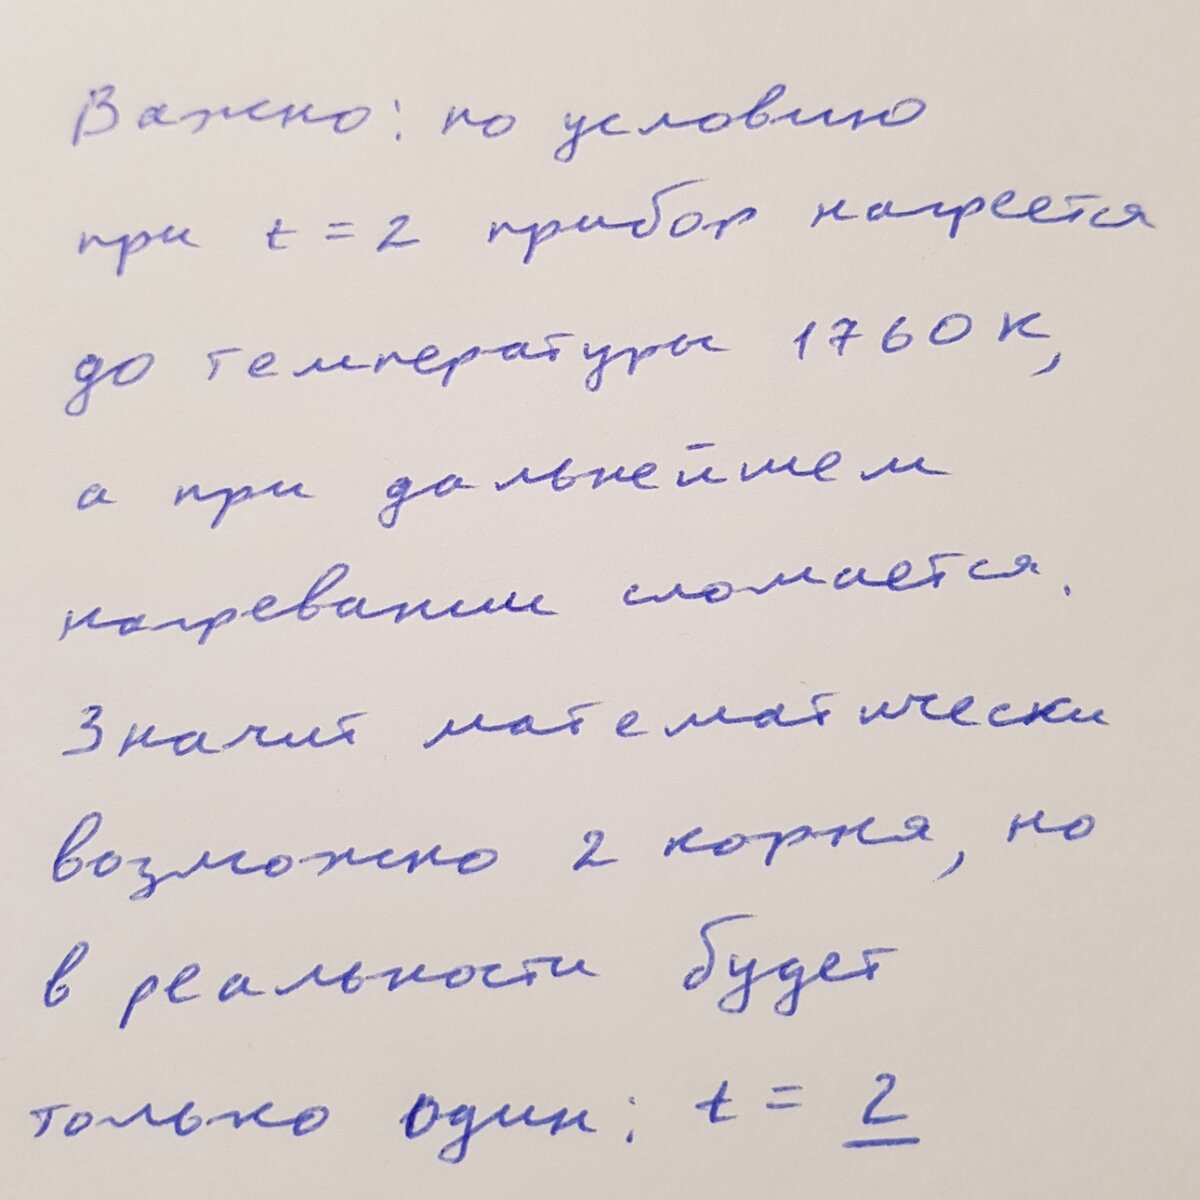 Важно: по условию
при t = 2 прибор нагреется
до температуры 1760 К,
а при дальнейшем
нагревании сломается.
Значит математически
возможно 2 корня, но
в реальности будет
только один: t = 2